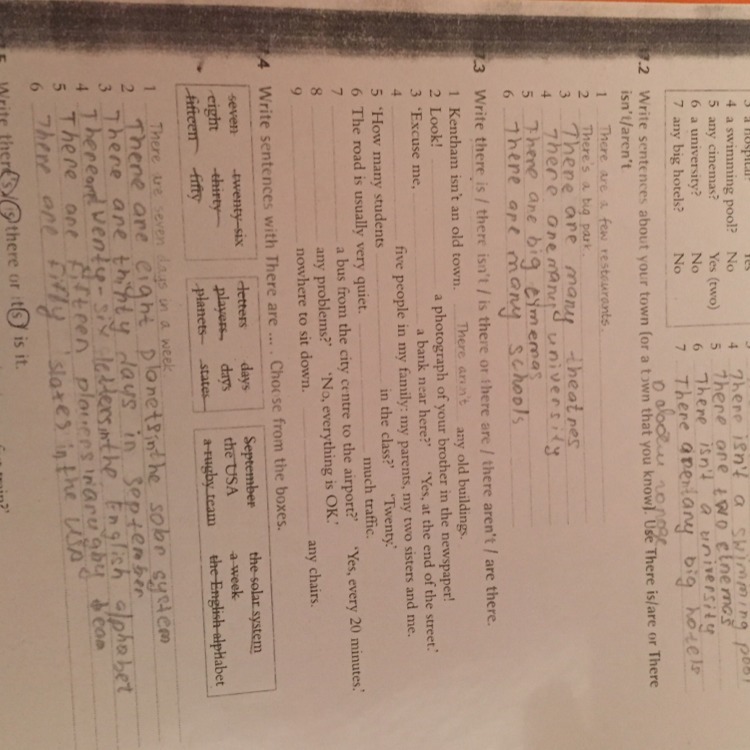 4 a swimming pool? No
5 any cinemas? Yes (two)
6 a university? No
7 any big hotels? No
4 There isn't a swimming pool
5 There are two cinemas
6 There isn't a university
7 There aren't any big hotels
7.2 Write sentences about your town (or a town that you know). Use There is/are or There
isn't/aren't
1 There are a few restaurants.
2 There's a big park.
3 There are many theatres
4 There are many university
5 There are big cinemas
6 There are many schools
7.3 Write there is / there isn't / is there or there are / there aren't / are there.
1 Kentham isn't an old town. There aren't any old buildings.
2 Look! a photograph of your brother in the newspaper!
3 'Excuse me, a bank near here?' 'Yes, at the end of the street.'
4 five people in my family: my parents, my two sisters and me.
5 'How many students in the class?' 'Twenty.'
6 The road is usually very quiet. much traffic.
7 a bus from the city centre to the airport?' 'Yes, every 20 minutes.'
8 any problems?' 'No, everything is OK.'
9 nowhere to sit down. any chairs.
7.4 Write sentences with There are ... . Choose from the boxes.
seven twenty-six letters days September the solar system
eight thirty players days the USA a week
fifteen fifty planets states a rugby team the English alphabet
1 There are seven days in a week
2 There are eight planets in the solar system
3 There are thirty days in September
4 There are twenty-six letters in the English alphabet
5 There are fifteen players in a rugby team
6 There are fifty states in the USA
Write there('s) / is there or it('s) / is it.